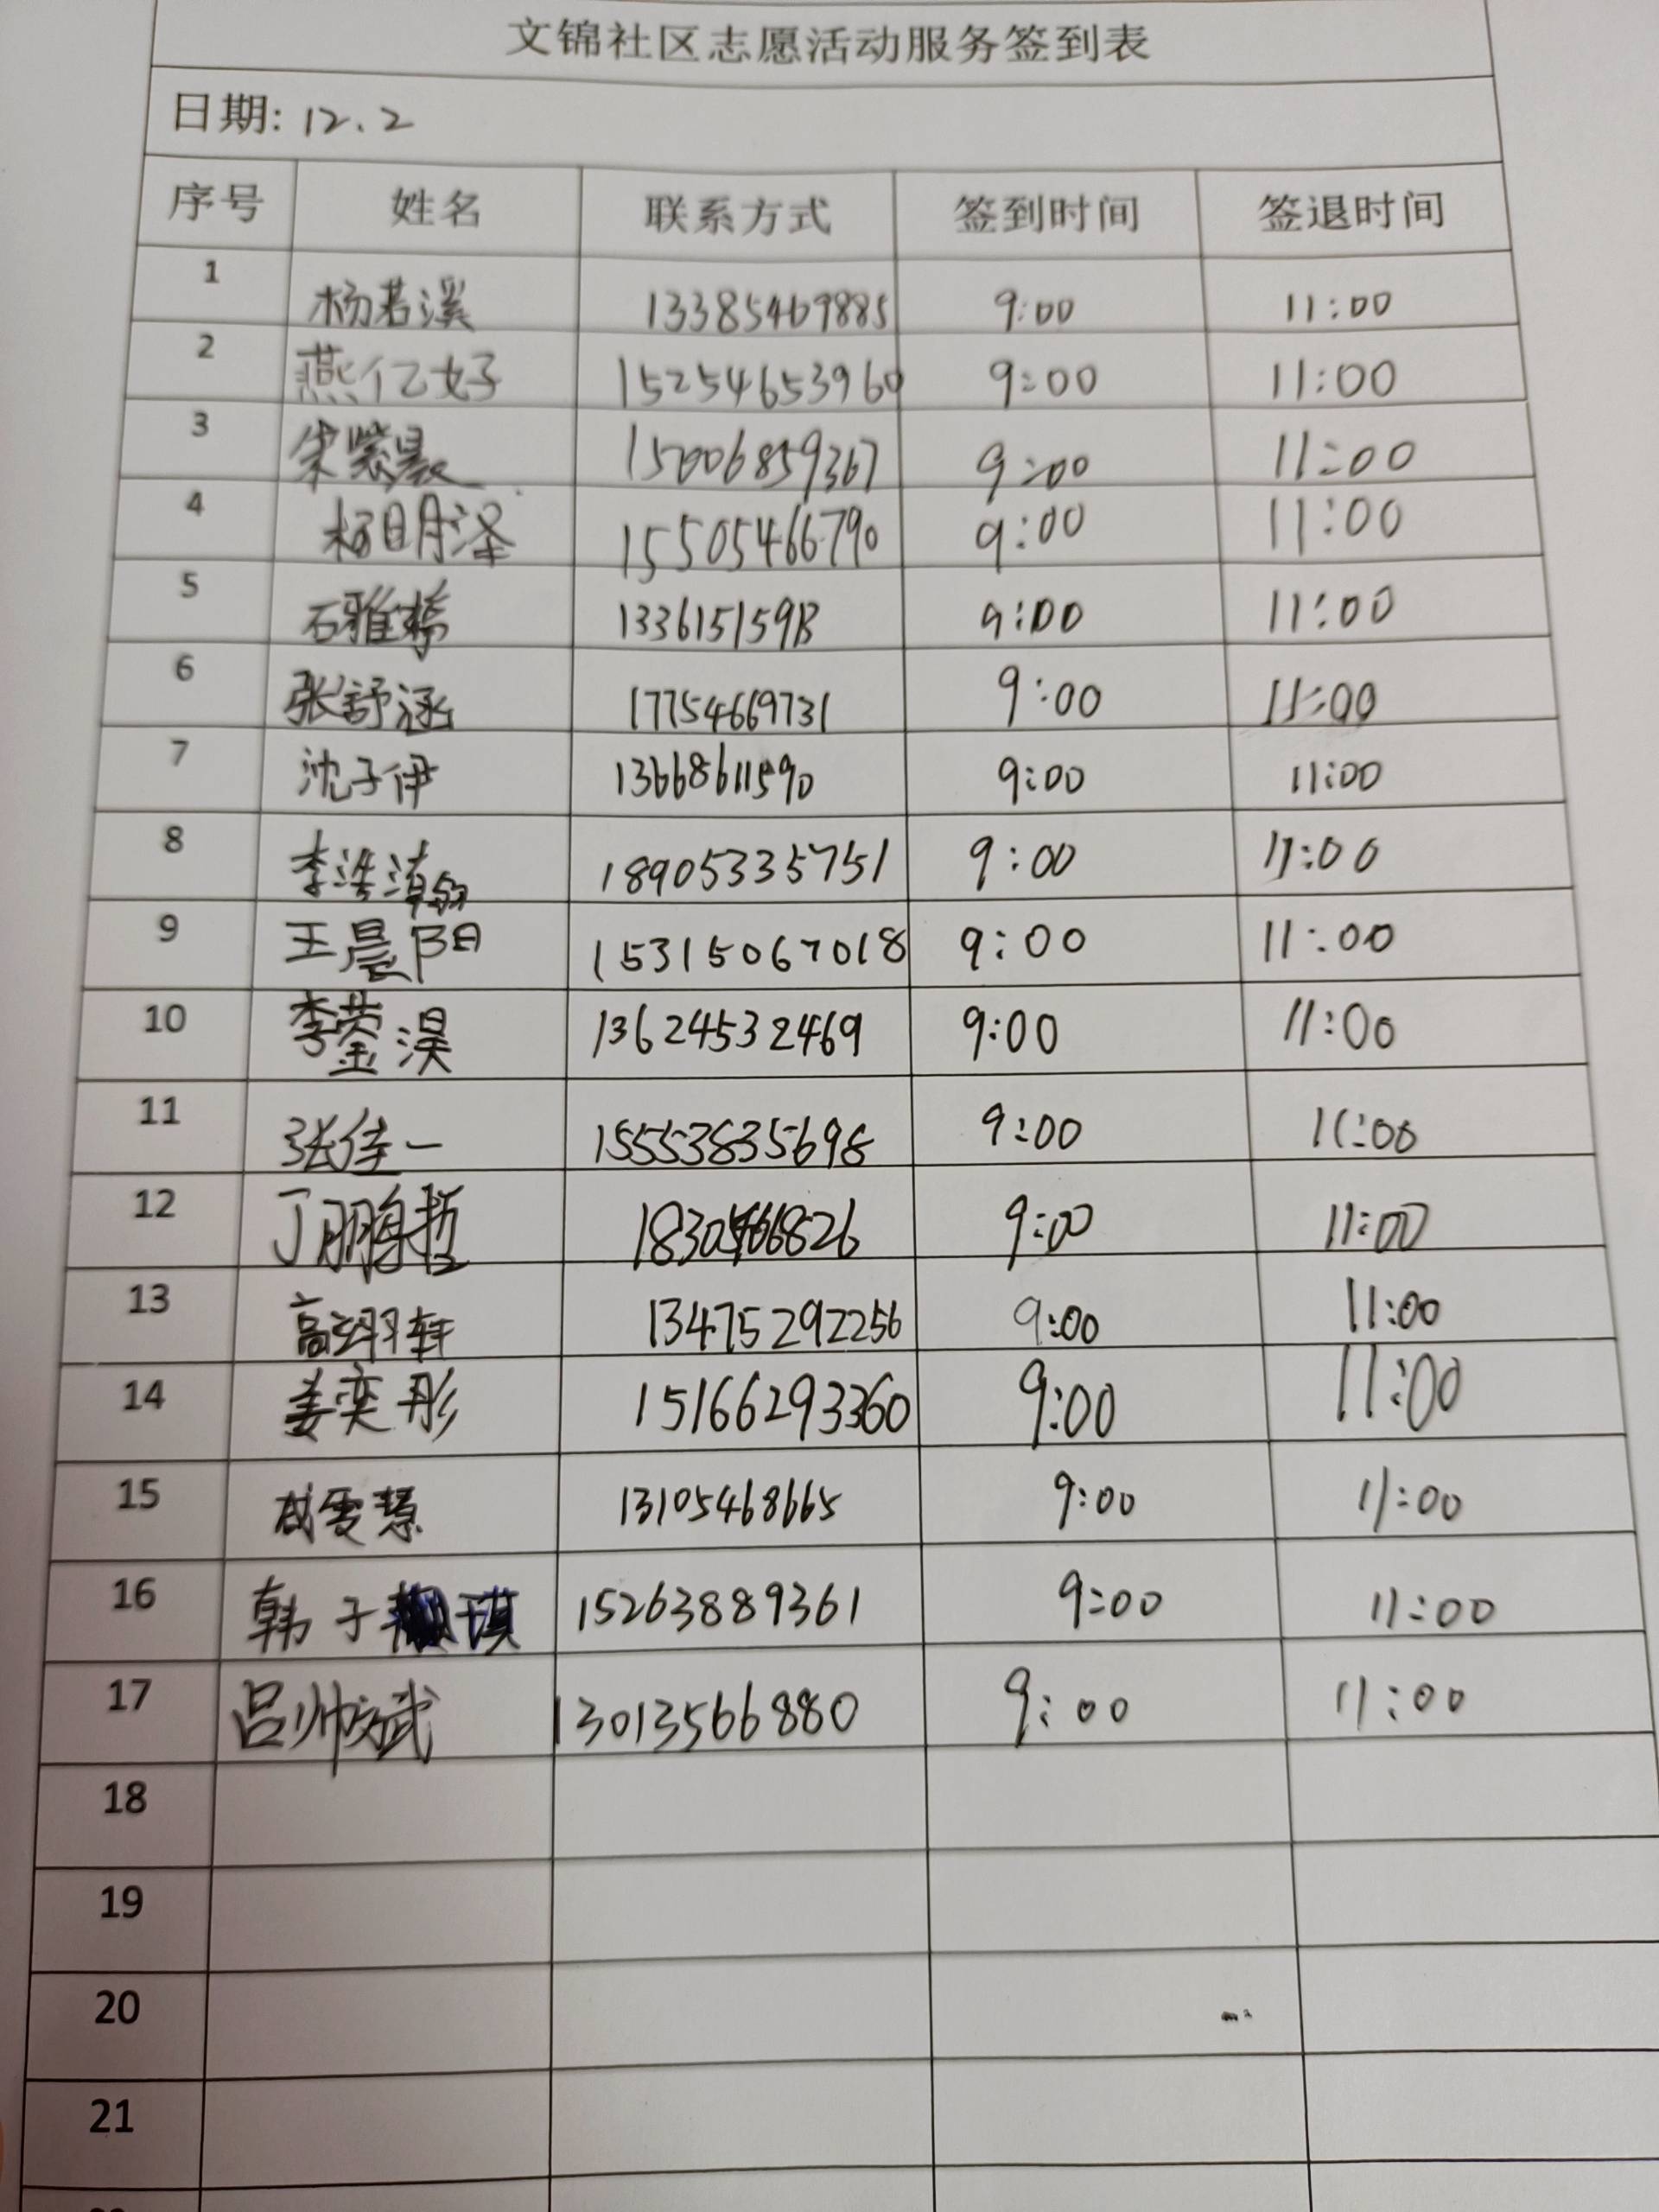 文锦社区志愿活动服务签到表
日期: 12.2
序号 姓名 联系方式 签到时间 签退时间
1 杨若溪 13385469885 9:00 11:00
2 燕亿好 15254653960 9:00 11:00
3 宋紫晨 15006859367 9:00 11:00
4 杨明泽 15505466790 9:00 11:00
5 石雅婷 9:00 11:00
6 张舒涵 17754669731 9:00 11:00
7 沈子伊 13668611590 9:00 11:00
8 18905335751 9:00 11:00
9 王晨阳 15315067018 9:00 11:00
10 李蓥淏 13624532469 9:00 11:00
11 张佳一 15553835698 9:00 11:00
12 丁鹏哲 9:00 11:00
13 高翊轩 13475292256 9:00 11:00
14 姜奕彤 15166293360 9:00 11:00
15 13105468665 9:00 11:00
16 韩子琪 15263889361 9:00 11:00
17 吕帅斌 13013566880 9:00 11:00
18
19
20
21